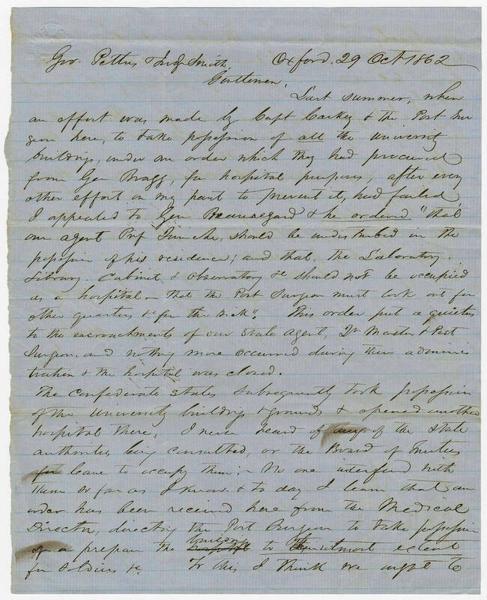 Gov. Pettus & Judge Smith, Oxford. 29 Oct 1862
Gentlemen,
Last summer, when
an effort was made by Capt & the Post Sur
geon here, to take possession of all the university
buildings, under an order which they had procured
from Gen Bragg, for hospital purposes, after every
other effort on my part to prevent it, had failed
I appealed to Gen Beauregard & he ordered "that
our agent Prof should be undisturbed in the
possession of his residence; and that the Laboratory.
Library. Cabinet & Observatory &c should not be occupied
as a hospital & that the Post Surgeon must look out for
other quarters &c for the sick". This order put a quietus
to the encroachments of our State Agent, Qr Master & Post
Surgeon. and nothing more occurred during their adminis
tration & the hospital was closed.
The Confederate States subsequently took possession
of the University buildings & grounds, & opened another
hospital there; I never heard of any of the State
authorities being consulted, or the Board of Trustees
leave to occupy them:- No one interfered with
them so far as I know. & to day I learn that an
order has been received here from the Medical
Director, directing the Post Surgeon to take possession
& prepare the to the utmost extent
for soldiers &c. To this I think we ought to